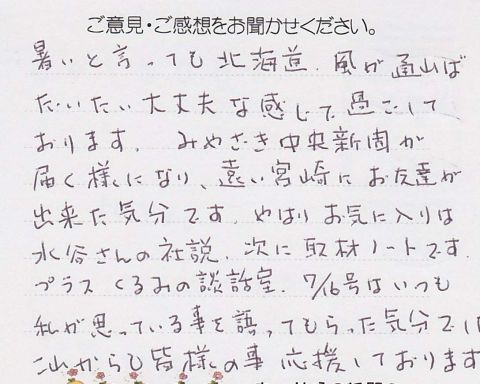 ご意見・ご感想をお聞かせください。
暑いと言っても北海道、風が通れば
だいたい大丈夫な感じで過ごして
おります。みやざき中央新聞が
届く様になり、遠い宮崎にお友達が
出来た気分です。やはりお気に入りは
水谷さんの社説、次に取材ノートです。
プラスくるみの談話室。7/16号はいつも
私が思っている事を語ってもらった気分でし
これからも皆様の事応援しております